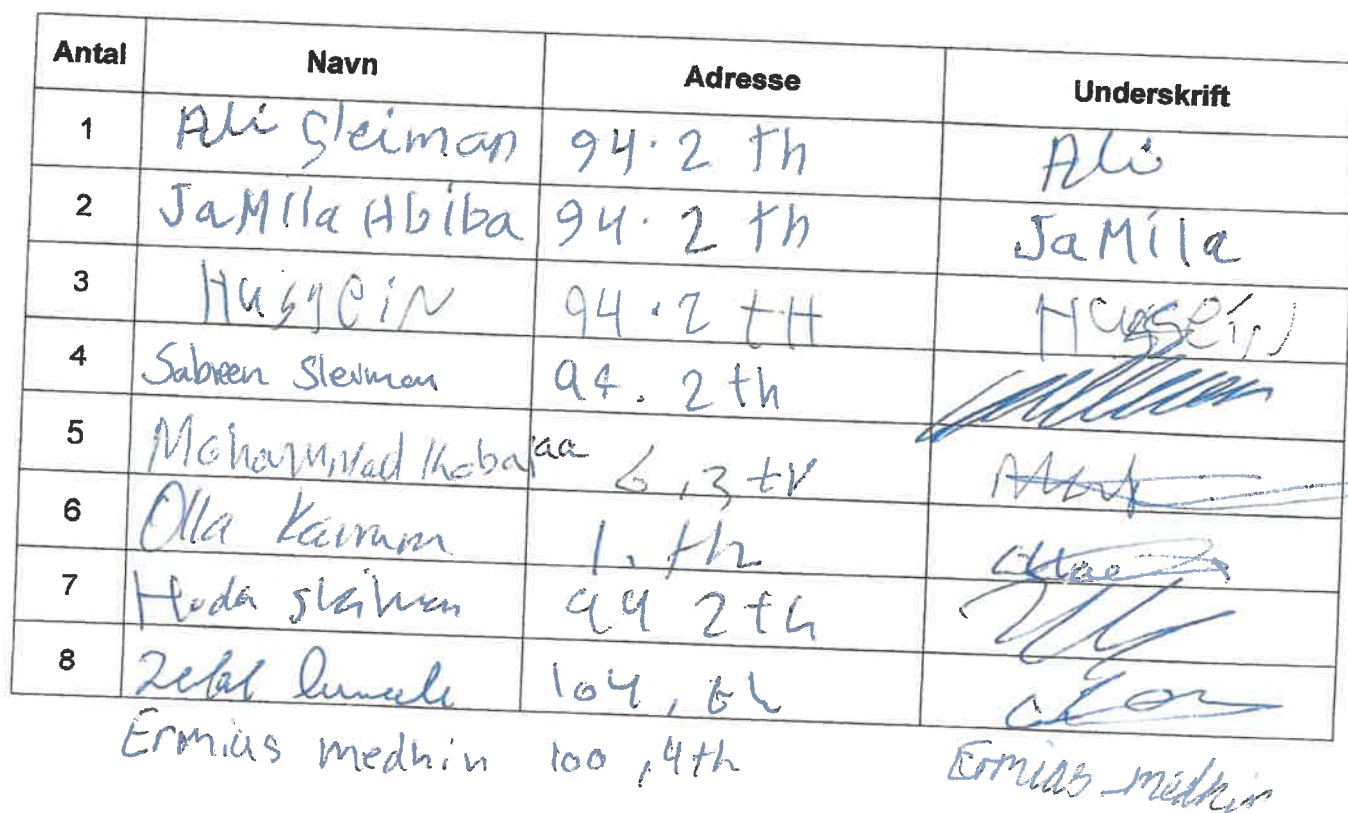 Antal Navn Adresse Underskrift
1 Ali Sleiman 94.2 th Ali
2 JaMIla Abiba 94.2 th JaMila
3 HusseiN 94.2 tH HusseiN
4 Sabreen Sleiman 94. 2 th
5 Mohammad 6,3 tv
6 Olla 1. th
7 Hoda Sleiman 94 2 th
8 104,
Ermias medhin 100,4th Ermias medhin